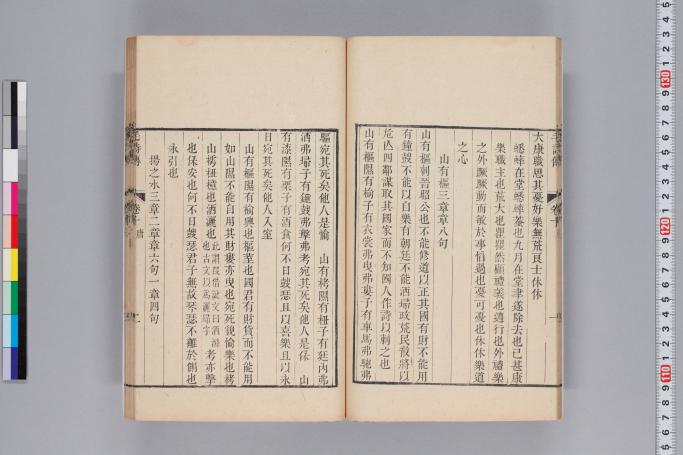 大康職思其憂好樂無荒良士休休
蟋蟀在堂蟋蟀蛬也九月在堂聿遂除去也已甚康
樂職主也荒大也瞿瞿然顧禮義也邁行也外禮樂
之外蹶蹶動而敏於事慆過也憂可憂也休休樂道
之心
山有樞三章章八句
山有樞刺晉昭公也不能修道以正其國有財不能用
有鐘鼓不能以自樂有朝廷不能洒埽政荒民散將以
危亾四鄰謀取其國家而不知國人作詩以刺之也
山有樞隰有榆子有衣裳弗曳弗婁子有車馬弗馳弗
驅宛其死矣他人是愉　山有栲隰有杻子有廷內弗
洒弗埽子有鐘鼓弗擊弗考宛其死矣他人是保　山
有漆隰有栗子有酒食何不日鼓瑟且以喜樂且以永
日宛其死矣他人入室
山有樞隰有榆興也樞荎也國君有財貨而不能用
如山隰不能自用其財婁亦曳也宛死貌愉樂也栲
山樗杻檍也洒灑也此謂假借說文曰洒滌也古文以爲灑埽字考亦擊
也保安也何不日鼓瑟君子無故琴瑟不離於側也
永引也
揚之水三章二章章六句一章四句